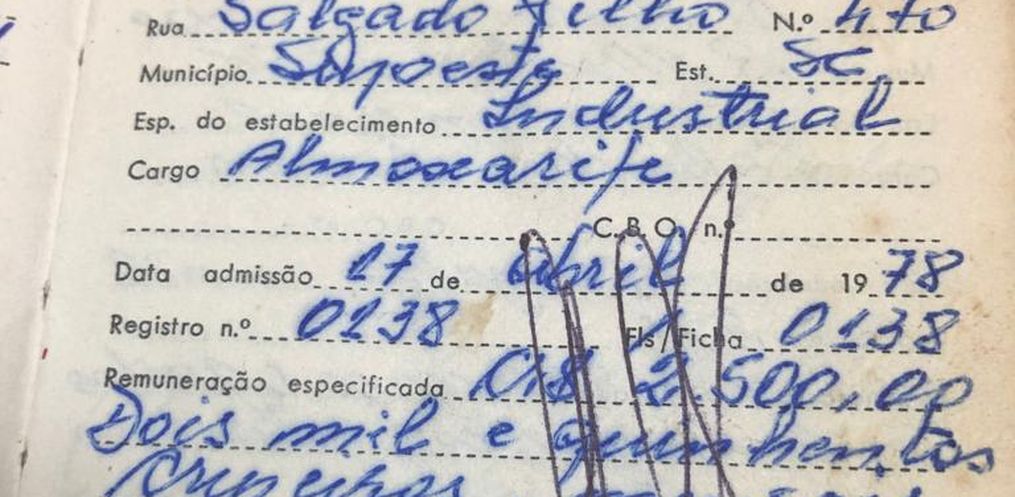 Rua Salgado Filho N.º 470
Município Est. SC
Esp. do estabelecimento Industrial
Cargo Almoxarife
C. B. O. n.º
Data admissão 17 de abril de 19 78
Registro n.º 0138 Fls/Ficha 0138
Remuneração especificada Cr$ 2.500,00
Dois mil e quinhentos
Cruzeiros